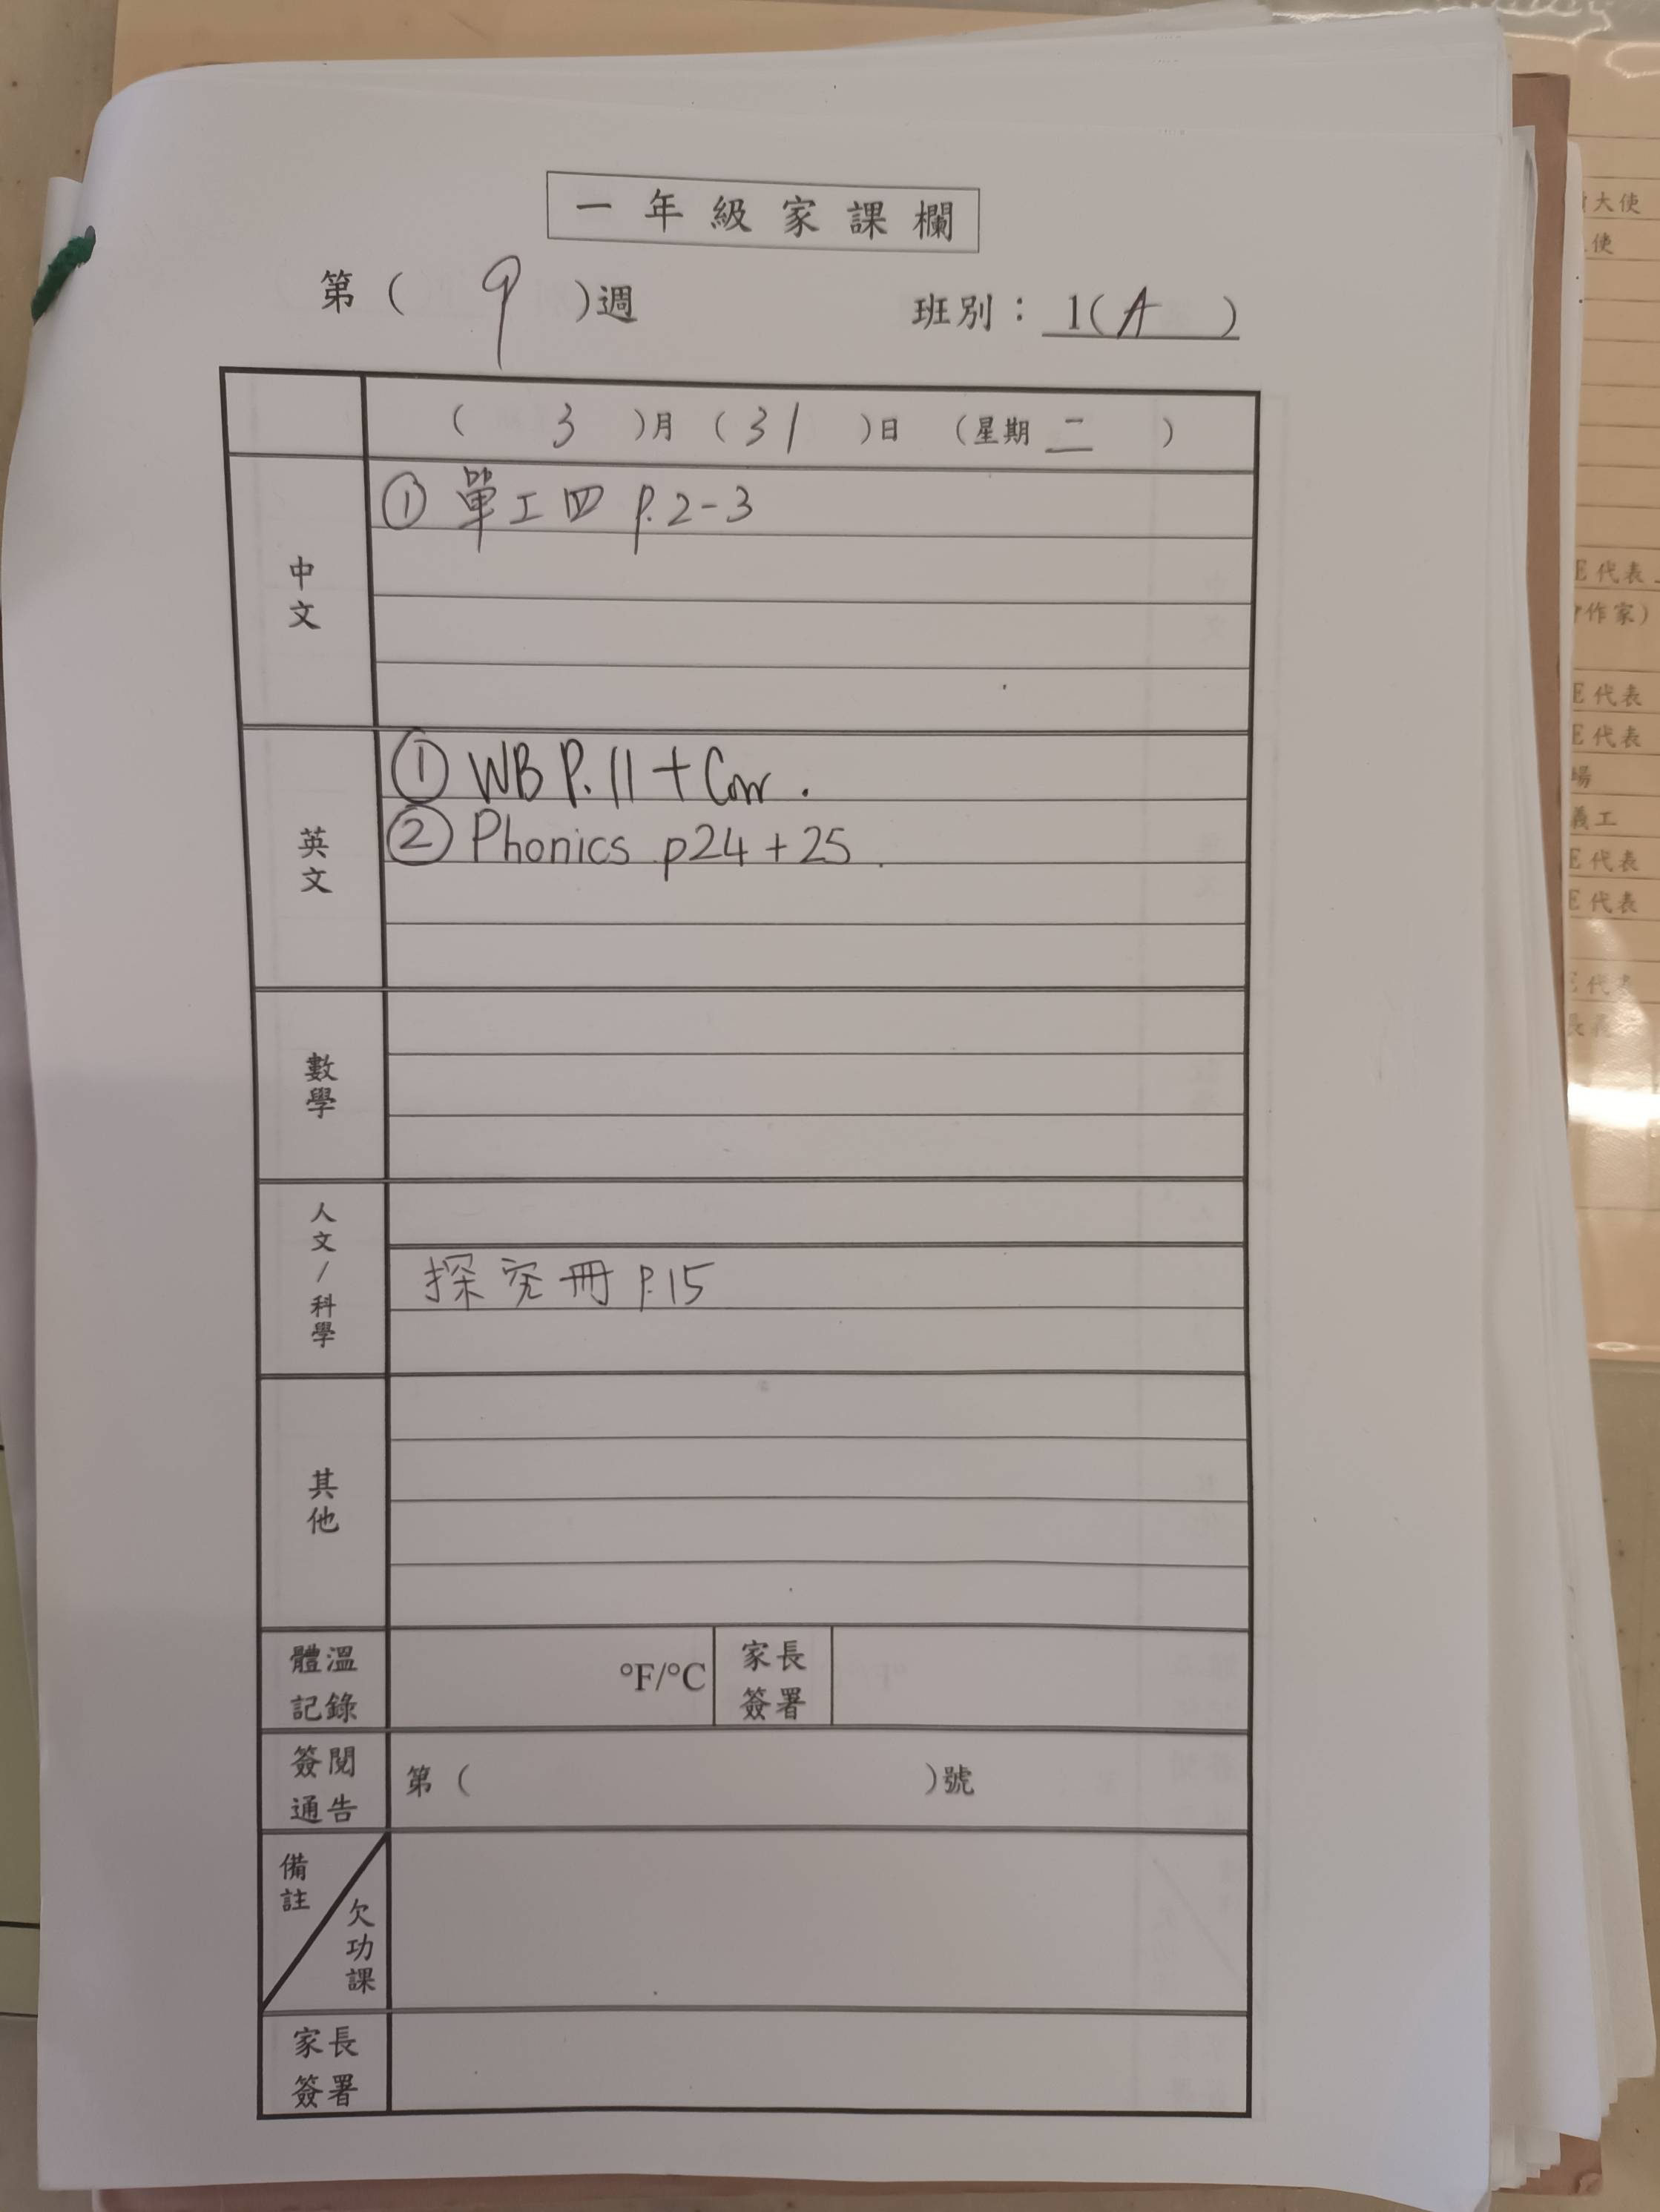 一年級家課欄
第( 9 )週 班別：1(A )
( 3 )月 ( 31 )日 (星期 二 )
中文
① 單工四 P.2-3
英文
① WB P.11 + Corr.
② Phonics p24 + 25
數學
人文/科學
探究冊 P.15
其他
體溫記錄 °F/°C 家長簽署
簽閱通告 第( )號
備註 欠功課
家長簽署
大使
使
E代表
作家)
E代表
E代表
場
義工
E代表
E代表
代表